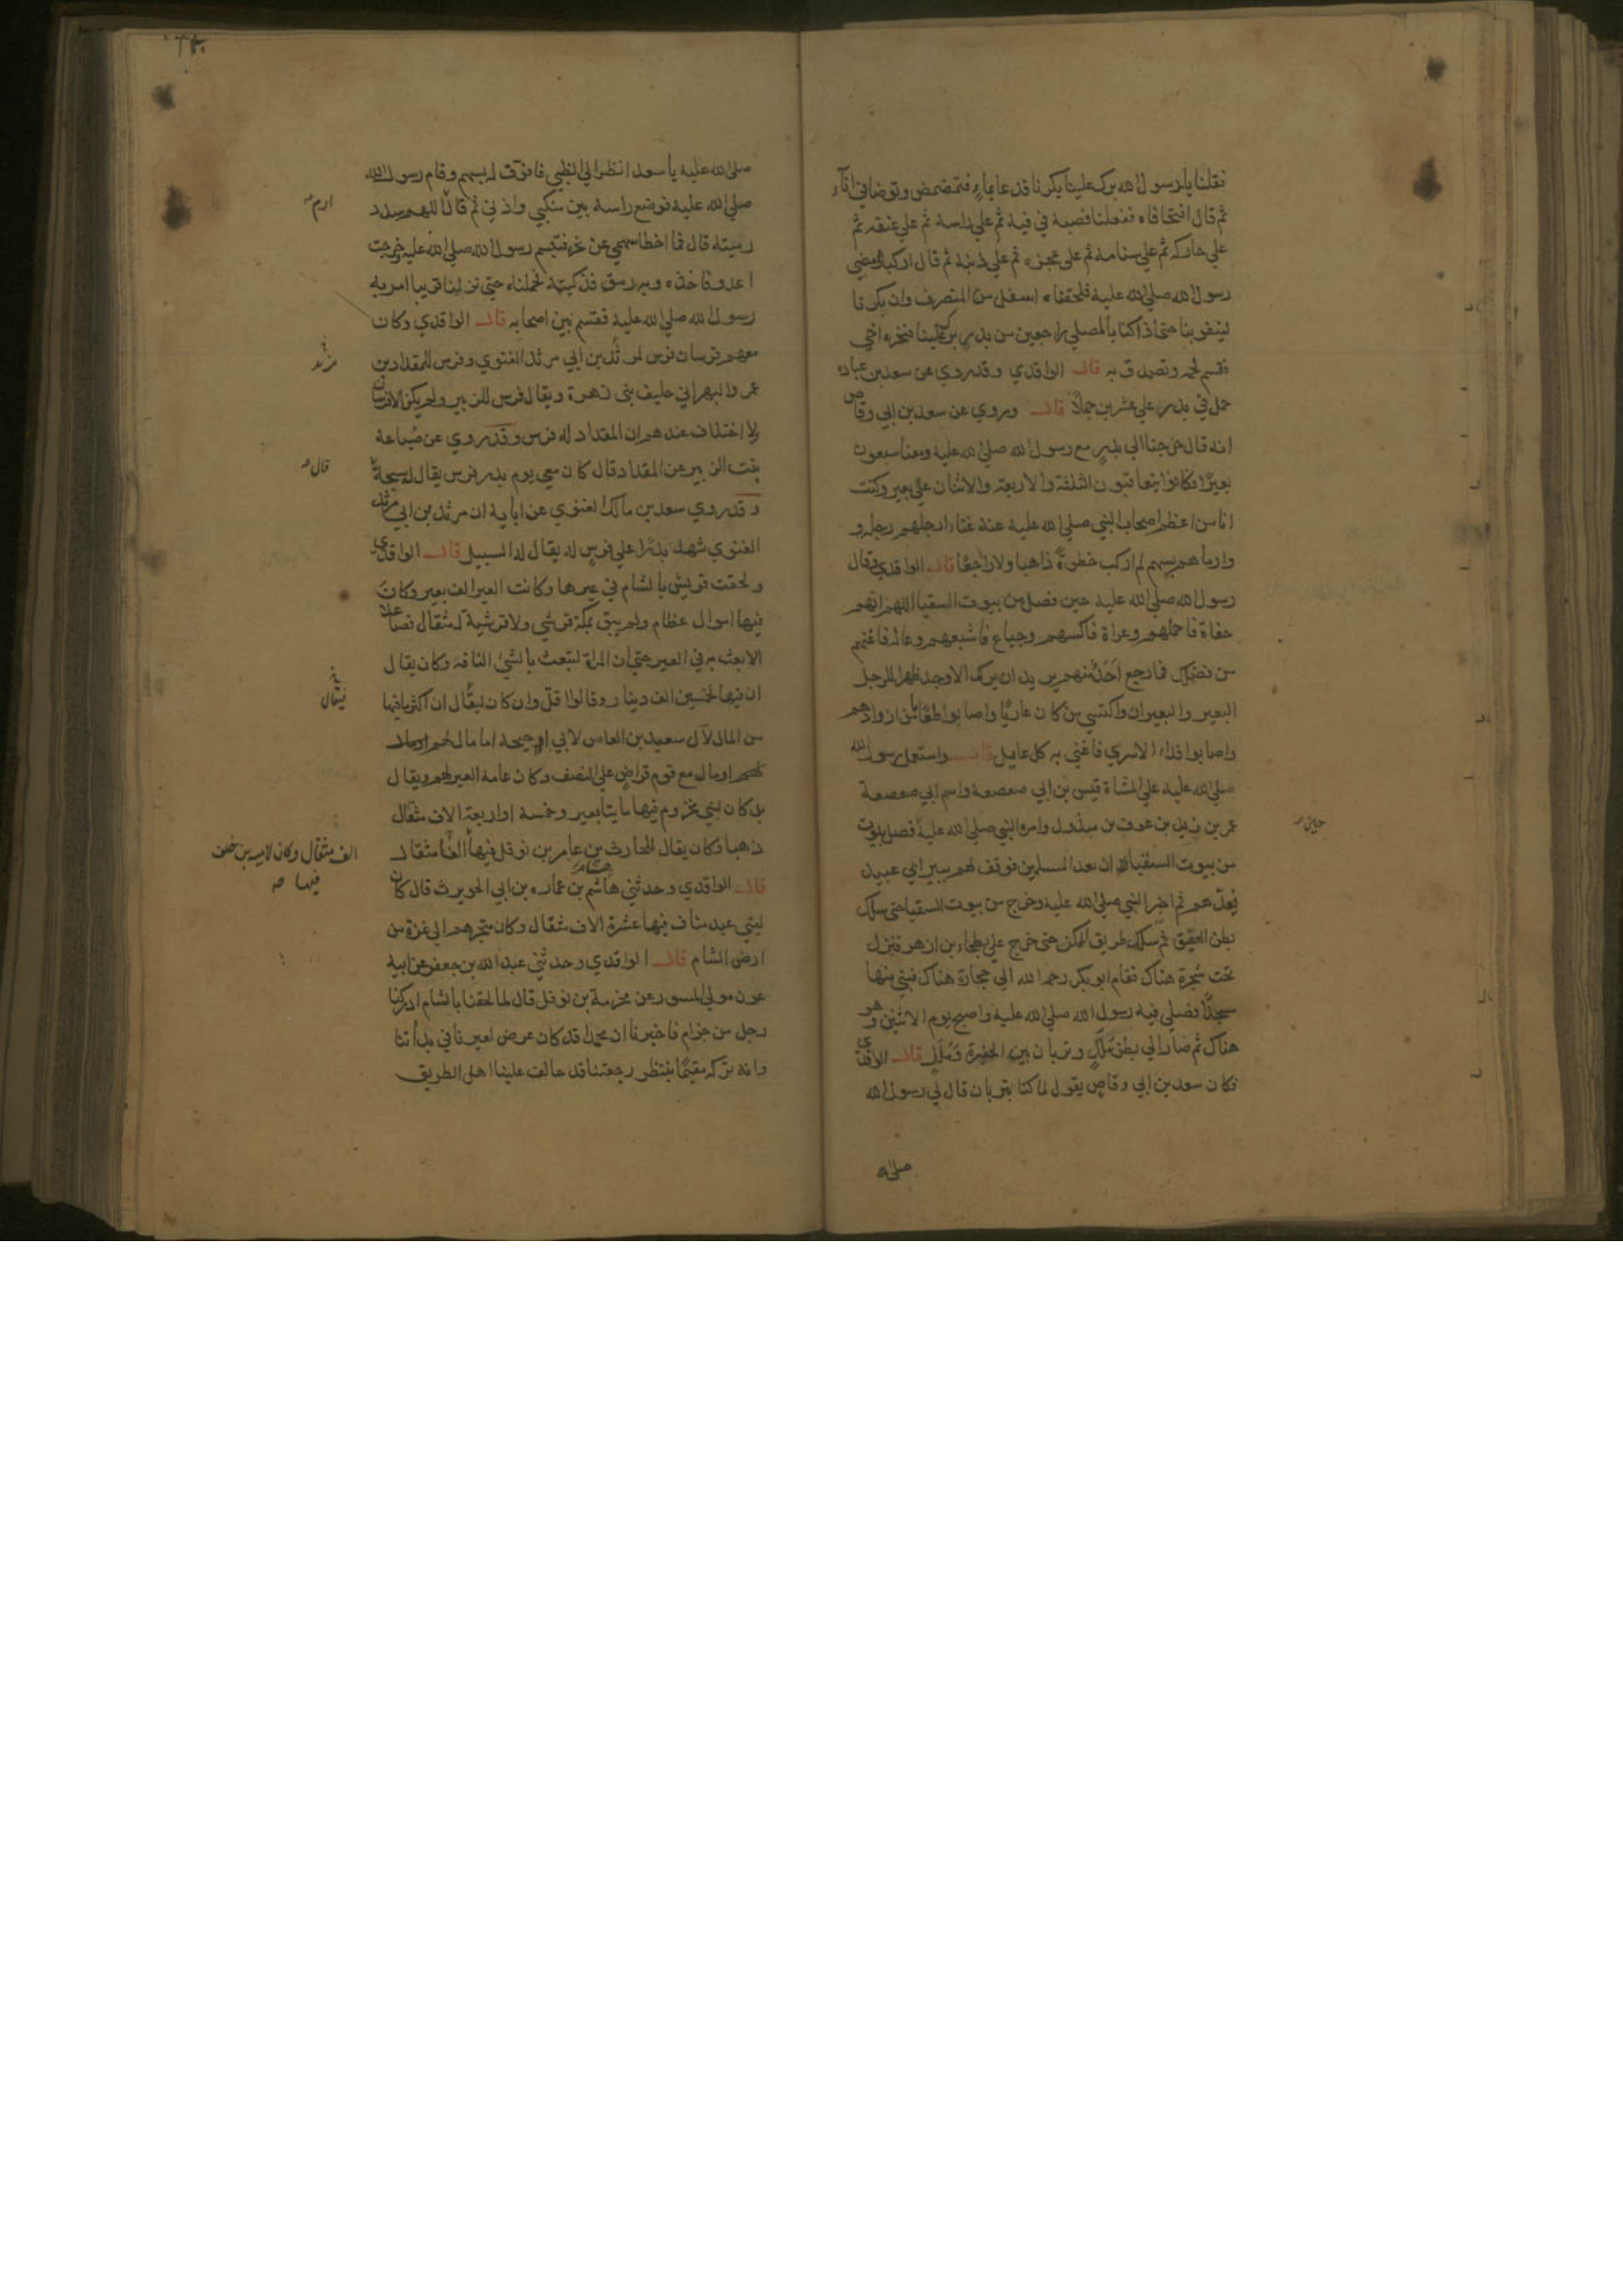 فقلنا يا رسول الله برك علينا بكرنا فدعا بماء فتمضمض وتوضا في اناء
ثم قال افتحا فاه ففعلنا فصبه في فيه ثم علي راسه ثم علي عنقه ثم
علي حاركه ثم علي سنامه ثم علي عجزه ثم علي ذنبه ثم قال اركبا ومضي
رسول الله صلي الله عليه فلحقناه اسفل من المنصرف وان بكرنا
لينفر بنا حتي اذا كنا بالمصلي راجعين من بدر برك علينا فنحره اخي
فقسم لحمه وتصدق به قال الواقدي وقد روي عن سعد بن عباده
حمل في بدر علي عشرين جملا قال ويروي عن سعد بن ابي وقاص
انه قال خرجنا الي بدر مع رسول الله صلي الله عليه ومعنا سبعون
بعيرا فكانوا يتعاقبون الثلثة والاربعة والاثنان علي بعير وكنت
انا من اعظم اصحاب النبي صلي الله عليه عنه غناء ارجلهم رجله و
وارماهم بسهم لم اركب خطوة ذاهبا ولا راجعا قال الواقدي وقال
رسول الله صلي الله عليه حين فصل من بيوت السقيا اللهم انهم
حفاة فاحملهم وعراة فاكسهم وجياع فاشبعهم وعالة فاغنهم
من فضلك فما رجع احد منهم يريد ان يركب الا وجد ظهرا للرجل
البعير والبعيران واكتسي من كان عاريا واصابوا طعاما من ازوادهم
واصابوا فداء الاسري فاغني به كل عايل قال واستعمل رسول الله
صلي الله عليه علي المشاة قيس بن ابي صعصعة واسم ابي صعصعة
عمر بن زيد بن عوف بن مبذول وامره النبي صلي الله عليه فصل بيوت
حين
من بيوت السقيا ان يعد المسلمين فوقف لهم ببير ابي عبيد
فعدهم ثم اخبر النبي صلي الله عليه وخرج من بيوت السقيا حتي سلك
بطن العقيق ثم سلك طريق المكتمن حتي خرج علي بطحاء بن ازهر فنزل
تحت شجرة هناك فقام ابو بكر رحمه الله الي حجارة هناك فبني منها
مسجدا فصلي فيه رسول الله صلي الله عليه واصبح يوم الاثنين وهو
هناك ثم صار الي بطن ملل وتربان بين الحفيرة وملل قال الواقدي
فكان سعد بن ابي وقاص يقول لما كنا بتربان قال لي رسول الله
صلي الله
صلي الله عليه يا سعد انظر الي الظبي فافوق له بسهم وقام رسول الله
صلي الله عليه فوضع راسه بين منكبي واذني ثم قال اللهم سدد
ارم
رميته قال فما اخطا سهمي عن نحره فتبسم رسول الله صلي الله عليه وخرجت
اعدو فاخذه وبه رمق فذكيته فحملناه حتي نزلنا قريبا امر به
رسول الله صلي الله عليه فقسم بين اصحابه قال الواقدي وكان
معهم فرسان فرس لمرثد بن ابي مرثد الغنوي وفرس للمقداد بن
مرثد
عمر والبهراني حليف بني زهرة ويقال فرس للزبير ولم يكن الا فرسان
ولا اختلاف عندهم ان المقداد له فرس وقد روي عن ضباعة
بنت الزبير عن المقداد قال كان معي يوم بدر فرس يقال له سبحة
قال
وقد روي سعد بن مالك الغنوي عن ابايه ان مرثد بن ابي مرثد
الغنوي شهد بدرا علي فرس له يقال له السبيل قال الواقدي
ولحقت قريش بالشام في عيرها وكانت العير الف بعير وكانت
فيها اموال عظام ولم يبق بمكة قرشي ولا قرشية له مثقال فصاعدا
الا بعث به في العير حتي ان المراة لتبعث بالشئ التافه وكان يقال
ان فيها لخمسين الف دينار وقالوا اقل وان كان ليقال ان اكثر ما فيها
فيقال
من المال لآل سعيد بن العاص لابي احيحة اما مال لهم او مال
لهم او مال مع قوم قراض علي النصف وكان عامة العير لهم ويقال
بل كان لبني مخزوم فيها مايتا بعير وخمسة او اربعة الاف مثقال
ذهبا وكان يقال للحارث بن عامر بن نوفل فيها الفا مثقال
الف مثقال وكان لاميه بن خلف
فيها صح
قال الواقدي وحدثني هاشم بن عمارة بن ابي الحويرث قال كان
هشام
لبني عبد مناف فيها عشرة الاف مثقال وكان متجرهم الي غزة من
ارض الشام قال الواقدي وحدثني عبد الله بن جعفر عن ابيه
عون مولي المسور عن مخرمة بن نوفل قال لما لحقنا بالشام ادركنا
رجل من جزام فاخبرنا ان محمدا قد كان عرض لعيرنا في بدأتنا
وانه تركه مقيما ينتظر رجعتنا قد حالف علينا اهل الطريق